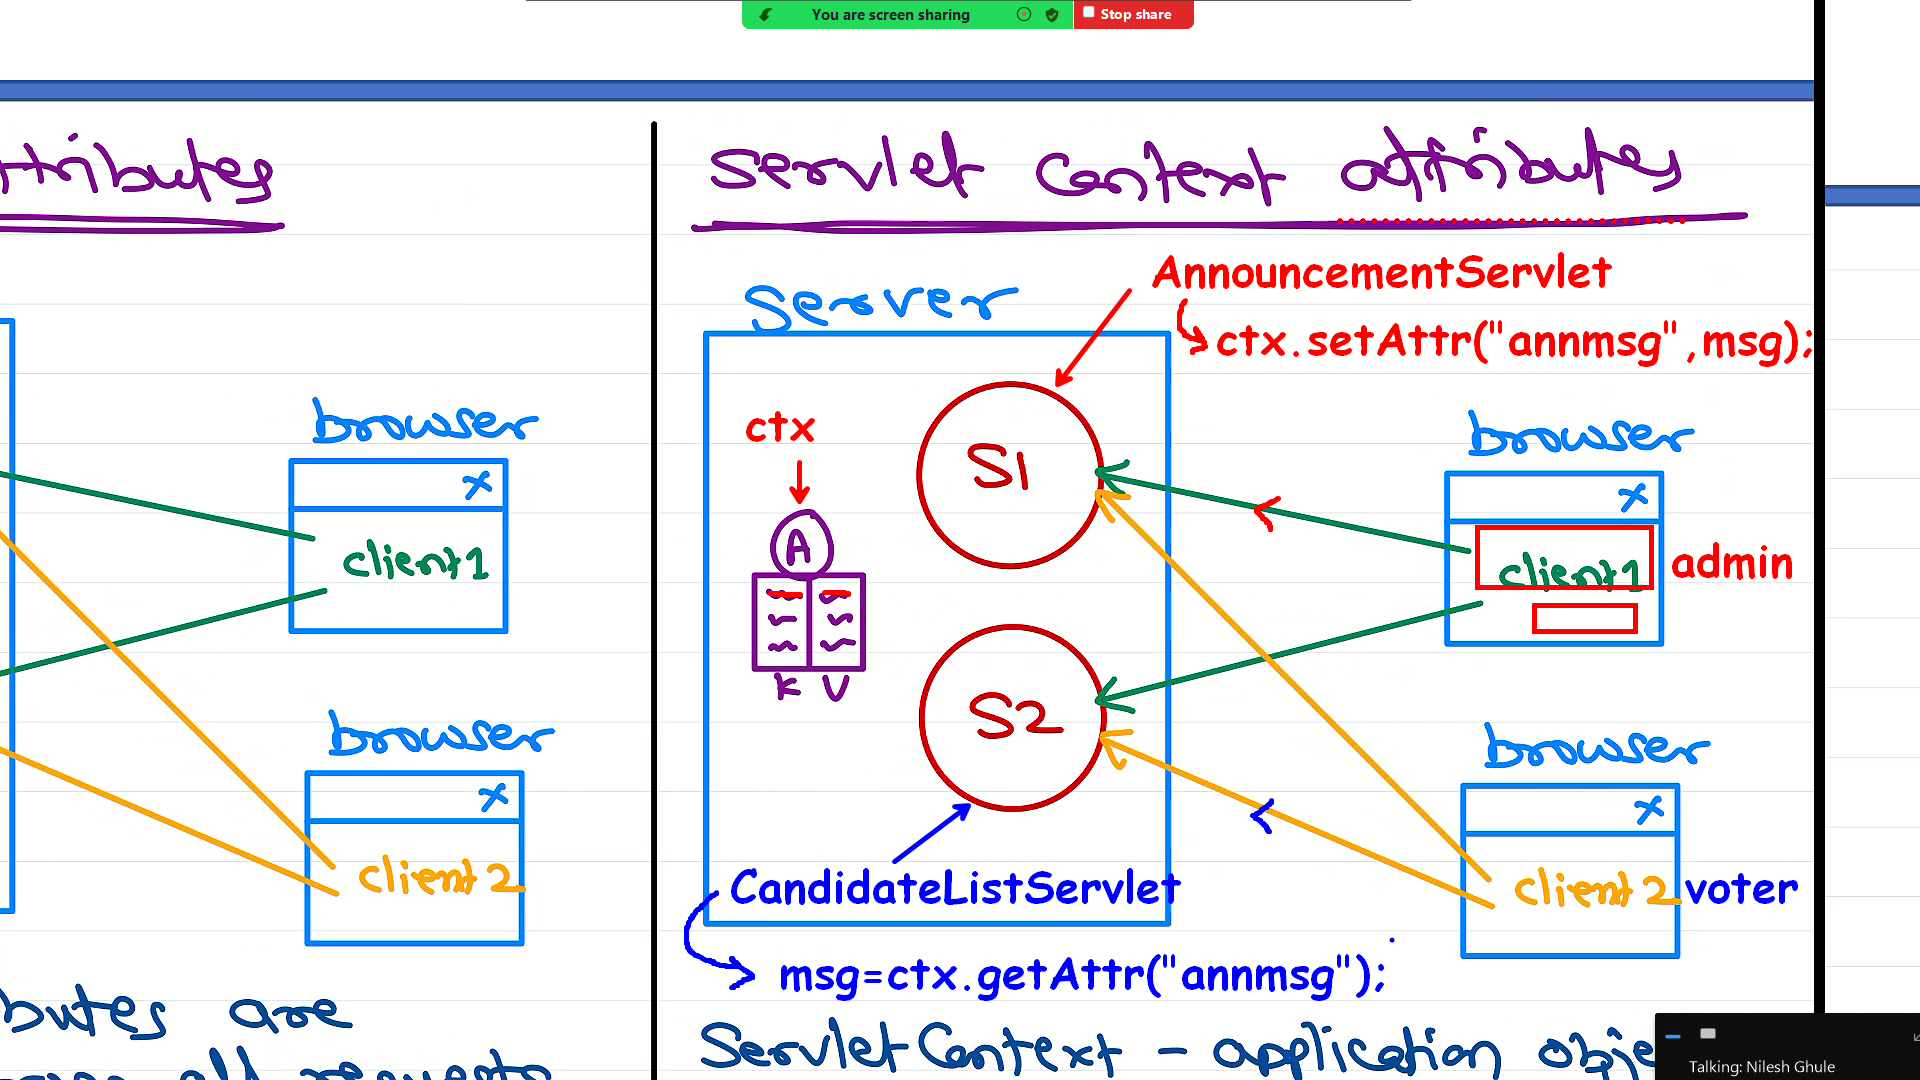 You are screen sharing
Stop share
ttributes
browser
x
client1
browser
x
client2
butes are
all requests
Servlet Context attributes
AnnouncementServlet
ctx.setAttr("annmsg",msg);
Server
ctx
A
K V
S1
S2
browser
x
client1
admin
browser
x
client2
voter
CandidateListServlet
msg=ctx.getAttr("annmsg");
ServletContext - application obje
Talking: Nilesh Ghule